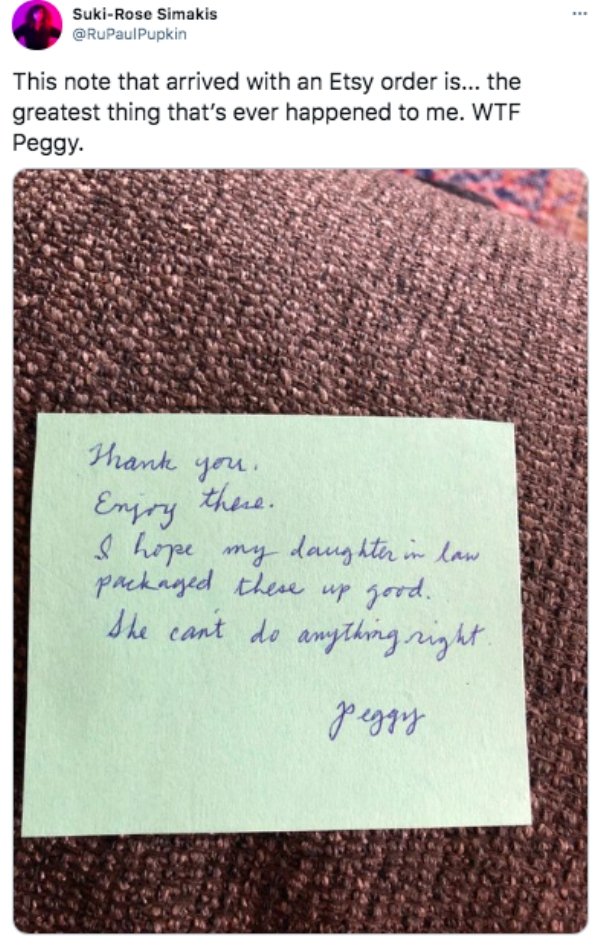 Suki-Rose Simakis
@RuPaulPupkin
This note that arrived with an Etsy order is... the
greatest thing that's ever happened to me. WTF
Peggy.
Thank you.
Enjoy these.
I hope my daughter in law
packaged these up good.
She can't do anything right.
Peggy